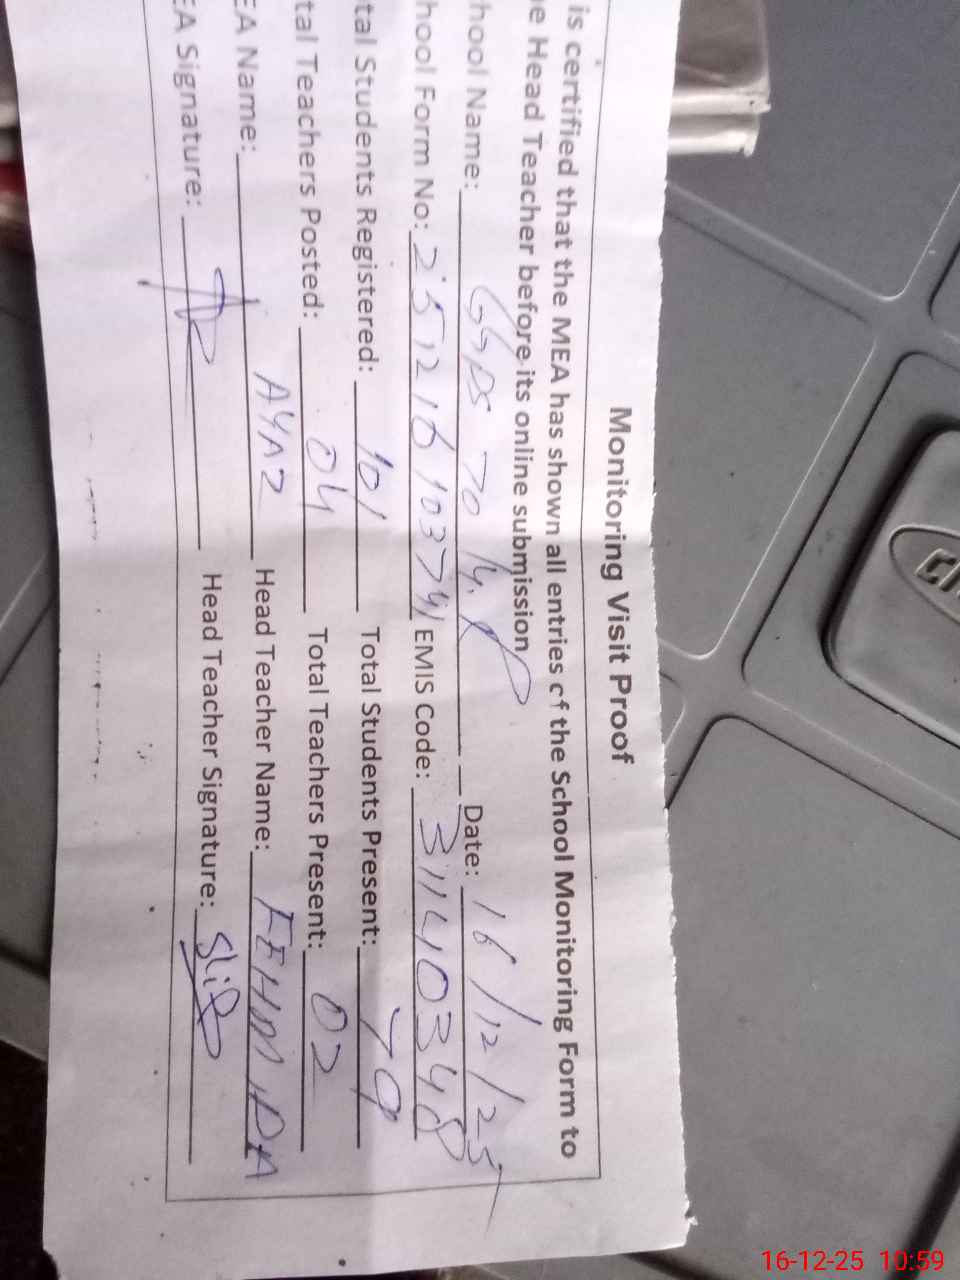 Monitoring Visit Proof
is certified that the MEA has shown all entries of the School Monitoring Form to
e Head Teacher before its online submission
hool Name: GGPS 70 M.P Date: 16/12/25
hool Form No: 251216103741 EMIS Code: 31140348
tal Students Registered: 101 Total Students Present: 79
tal Teachers Posted: 04 Total Teachers Present: 02
EA Name: AYAZ Head Teacher Name: FEHMIDA
EA Signature: Head Teacher Signature:
16-12-25 10:59